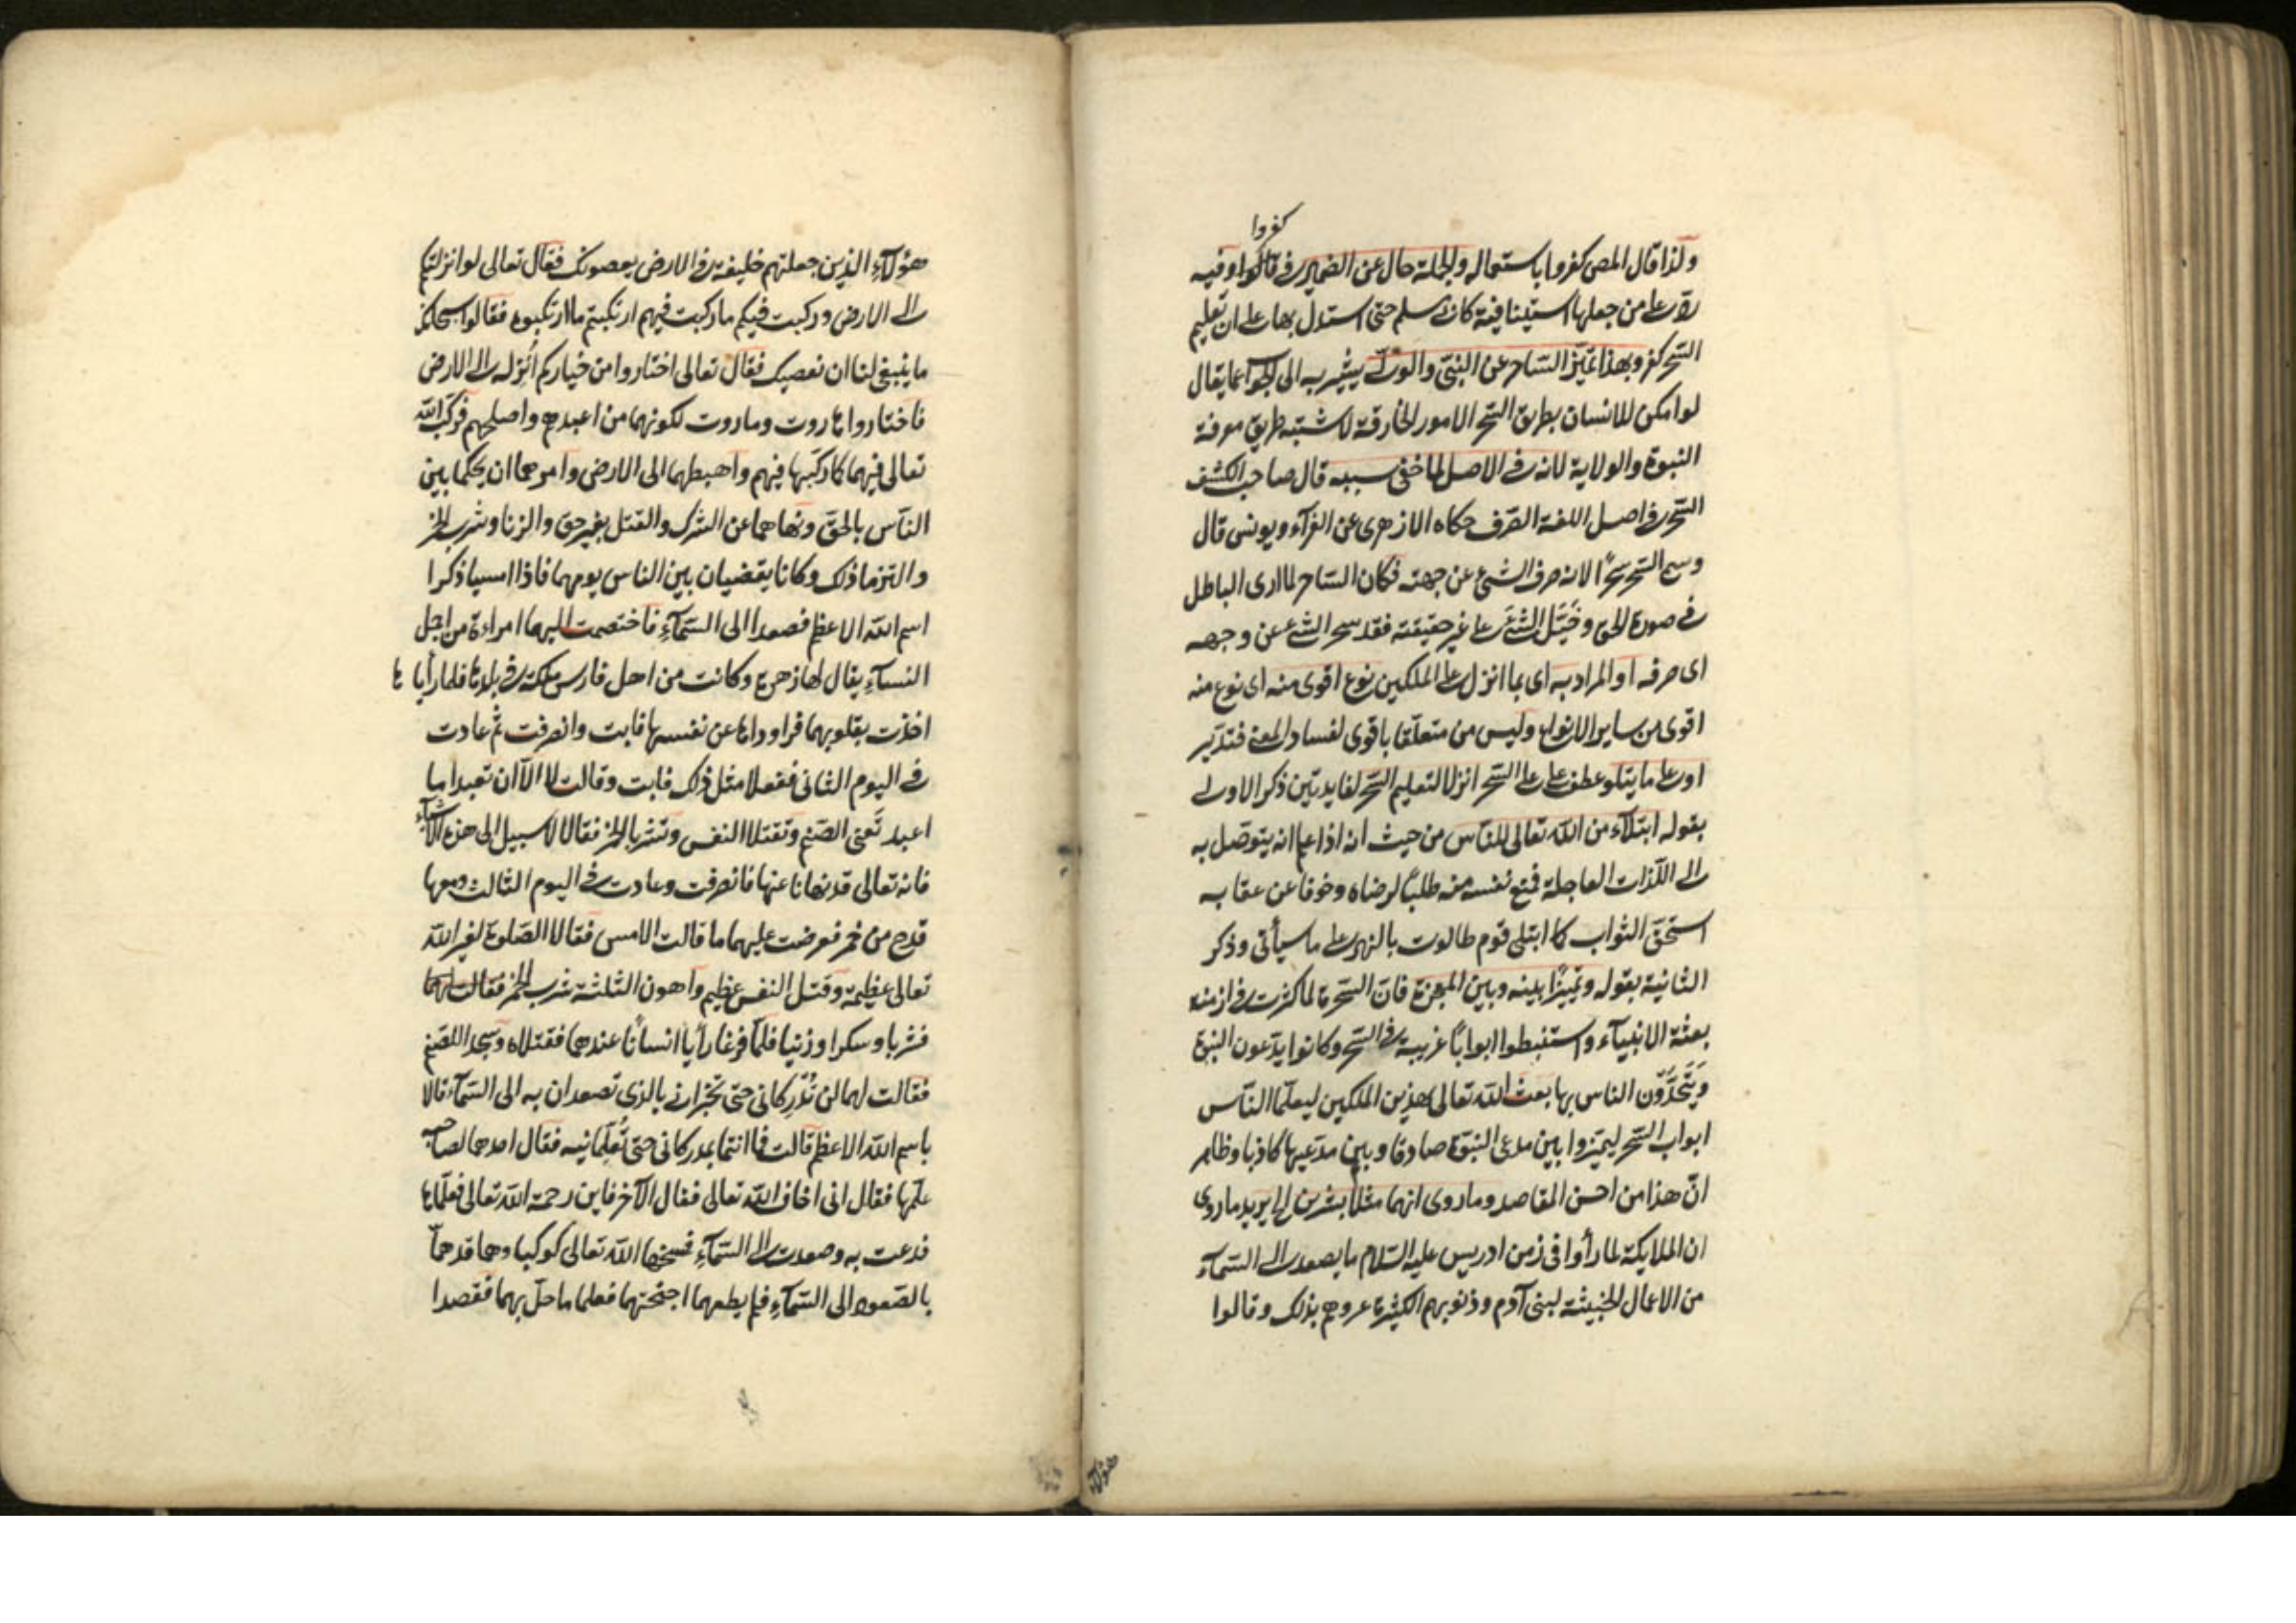 كفروا
ولذا قال المص كفروا باستعماله والجملة حال عن الضمير في كفروا وفيه
رد على من جعلها استينافية كانه سلم حتى استدل بها على ان تعليم
السحر كفر وبهذا تميز الساحر عن النبى والولى يشير به الى الجواب عما يقال
لو امكن للانسان بطريق السحر الامور الخارقة لاشتبه طريق معرفة
النبوة والولاية لانه في الاصل لما خفى سببه قال صاحب الكشف
السحر في اصل اللغة الصرف حكاه الازهرى عن الفرآء ويونس قال
وسمى السحر سحرًا لانه صرف الشئ عن جهته فكان الساحر لما ارى الباطل
في صورة الحق وخيَّل الشئَ على غير حقيقته فقد سحر الشئ عن وجهه
اى صرفه او المراد به اى بما انزل على الملكين نوع اقوى منه اى نوع منه
اقوى من ساير الانواع وليس من متعلقا باقوى لفساد المعنى فتدبر
او على ما يتلو عطف على السحر انزلا لتعليم السحر لفايدتين ذكر الاولى
بقوله ابتلآء من الله تعالى للناس من حيث انه اذا علم انه يتوصل به
الى اللذات العاجلة فمنع نفسه منه طلبًا لرضاه وخوفا عن عقابه
استحق الثواب كما ابتلى قوم طالوت بالنهر على ما سيأتى وذكر
الثانية بقوله وتمييزًا بينه وبين المعجزة فان السحرة لما كثرت في ازمنة
بعثة الانبيآء واستنبطوا ابوابًا غريبة في السحر وكانوا يدّعون النبوة
ويَتَحَدَّون الناس بها بعث الله تعالى هذين الملكين ليعلما الناس
ابواب السحر ليميزوا بين مدعى النبوة صادقا وبين مدعيها كاذبا وظاهر
انّ هذا من احسن المقاصد وما روى انهما مثلا بشرين الخ يريد ما روى
ان الملايكة لما رأوا فى زمن ادريس عليه السلام ما يصعد الى السمآء
من الاعمال الخبيثة لبنى آدم وذنوبهم الكثيرة عيروهم بذلك وقالوا
هؤلآء
هؤلآءِ الذين جعلتهم خليفة في الارض يعصونك فقال تعالى لو انزلتكم
الى الارض وركبت فيكم ما ركبت فيهم ارتكبتم ما ارتكبوه فقالوا سبحانك
ما ينبغى لنا ان نعصيك فقال تعالى اختاروا من خياركم أُنزله الى الارض
فاختاروا هاروت وماروت لكونهما من اعبدهم واصلحهم فركَّب الله
تعالى فيهما كما ركَّبها فيهم واهبطهما الى الارض وامرهما ان يحكما بين
الناس بالحق ونهاهما عن الشرك والقتل بغير حق والزنا وشرب الخمر
والتزما ذلك وكانا يقضيان بين الناس يومهما فاذا امسيا ذكرا
اسم الله الاعظم فصعدا الى السمآءِ فاختصمت اليهما امراءة من اجمل
النسآءِ يقال لها زهرة وكانت من اهل فارس ملكة في بلدها فلما رأياها
اخذت بقلوبهما فراوداها عن نفسها فابت وانصرفت ثم عادت
في اليوم الثانى ففعلا مثل ذلك فابت وقالت لا الّا ان تعبدا ما
اعبد تَعنى الصنم وتقتلا النفس وتشربا الخمر فقالا لا سبيل الى هذه الاشيآء
فانه تعالى قد نهانا عنها فانصرفت وعادت في اليوم الثالث ومعها
قدح من خمر فعرضت عليهما ما قالت الامس فقالا الصلوة لغير الله
تعالى عظيمة وقتل النفس عظيم واهون الثلثة شرب الخمر فقالت لهما
فشربا وسكرا وزنيا فلما فرغا رأيا انسانًا عندهما فقتلاه وسجدا للصنم
فقالت لهما لن تُدركانى حتى تخبرانى بالذى تصعدان به الى السمآء قالا
باسم الله الاعظم قالت فما انتما بمدركانى حتى تُعلّمانيه فقال احدهما لصاحبه
علّمها فقال انى اخاف الله تعالى فقال الآخر فاين رحمة الله تعالى فعلّماها
فدعت به وصعدت الى السمآءِ فمسخها الله تعالى كوكبا وهما قد همّا
بالصعود الى السمآءِ فلم يطعهما اجنحتهما فعلما ما حلّ بهما فقصدا